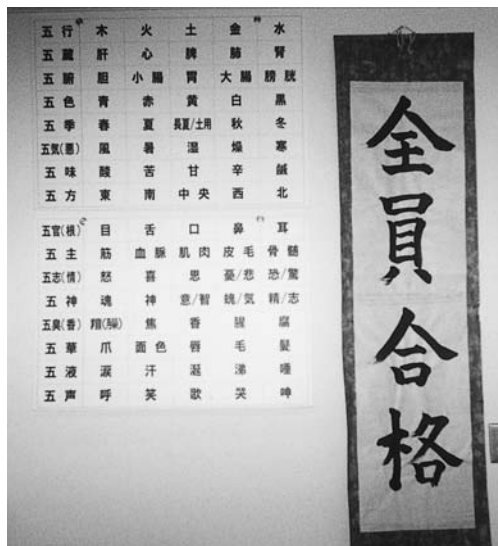 五行 木 火 土 金 水
五臓 肝 心 脾 肺 腎
五腑 胆 小腸 胃 大腸 膀胱
五色 青 赤 黄 白 黒
五季 春 夏 長夏/土用 秋 冬
五気(悪) 風 暑 湿 燥 寒
五味 酸 苦 甘 辛 鹹
五方 東 南 中央 西 北
五官(根) 目 舌 口 鼻 耳
五主 筋 血脈 肌肉 皮毛 骨髄
五志(情) 怒 喜 思 憂/悲 恐/驚
五神 魂 神 意/智 魄/気 精/志
五臭(香) 焦 香 腥 腐
五華 爪 面色 唇 毛 髪
五液 涙 汗 涎 涕 唾
五声 呼 笑 歌 哭 呻
全員合格